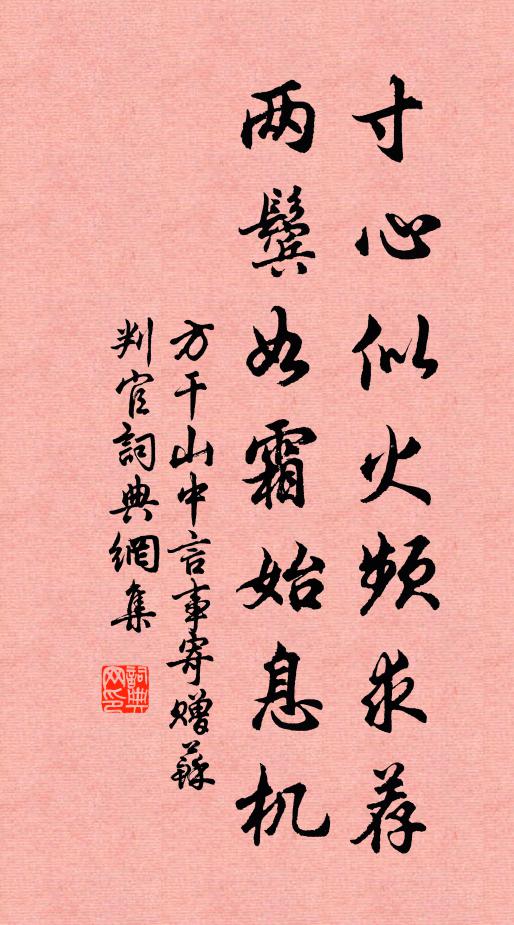 寸心似火频求荐
两鬓如霜始息机
方干山中言事寄赠蘇
判官詞典網集
詞典网印